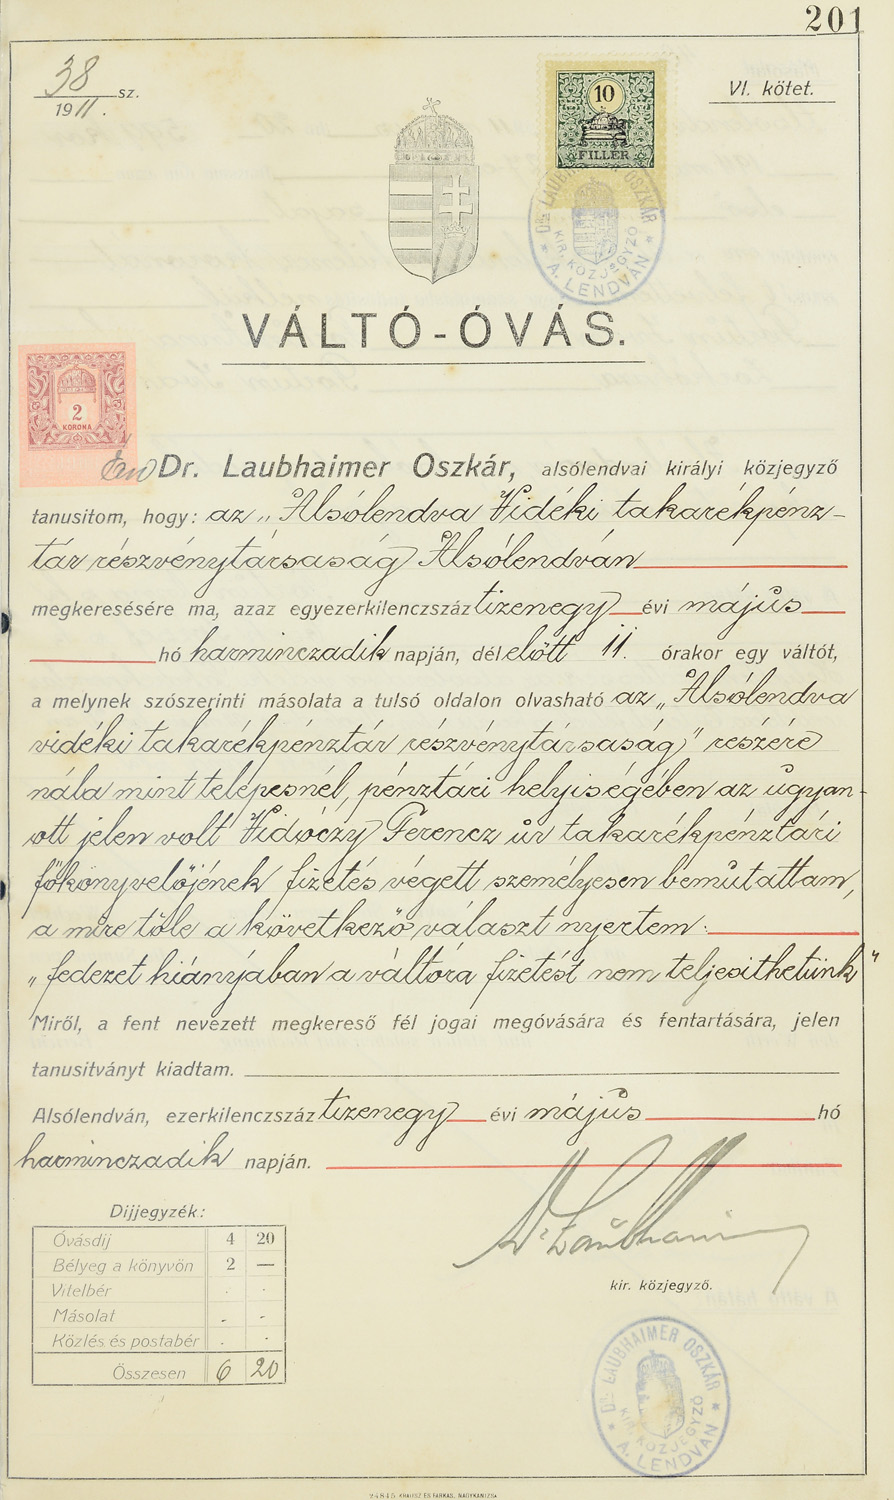 201
38 sz.
1911.
VI. kötet.
10
FILLER
Dr. LAUBHAIMER OSZKÁR
KIR. KÖZJEGYZŐ
* A. LENDVÁN *
VÁLTÓ-ÓVÁS.
2
KORONA
Én Dr. Laubhaimer Oszkár, alsólendvai királyi közjegyző
tanusitom, hogy: az „Alsólendva Vidéki takarékpénz-
tár részvénytársaság Alsólendván
megkeresésére ma, azaz egyezerkilenczszáz tizenegy évi május
hó harminczadik napján, délelőtt 11. órakor egy váltót,
a melynek szószerinti másolata a tulsó oldalon olvasható az „Alsólendva
vidéki takarékpénztár részvénytársaság" részére
nála mint telepesnél, pénztári helyiségében az ugyan-
ott jelen volt Vidóczy Ferencz úr takarékpénztári
főkönyvelőjének fizetés végett személyesen bemutattam,
a mire tőle a következő választ nyertem:
„fedezet hiányában a váltóra fizetést nem teljesithetünk"
Miről, a fent nevezett megkereső fél jogai megóvására és fentartására, jelen
tanusitványt kiadtam.
Alsólendván, ezerkilenczszáz tizenegy évi május hó
harminczadik napján.
Dijjegyzék:
Óvásdij 4 20
Bélyeg a könyvön 2 —
Vitelbér . .
Másolat . .
Közlés és postabér . .
Összesen 6 20
Dr Laubhaimer
kir. közjegyző.
Dr. LAUBHAIMER OSZKÁR
KIR. KÖZJEGYZŐ
* A. LENDVÁN *
24845 KRAUSZ ÉS FARKAS, NAGYKANIZSA